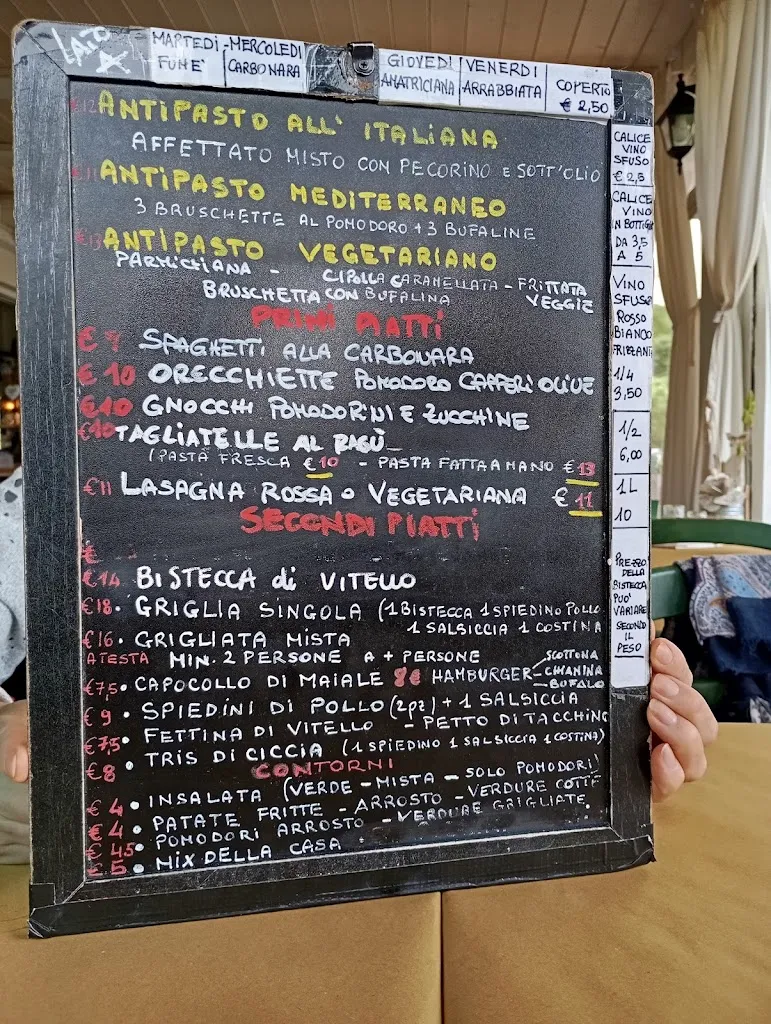 LATO A
MARTEDÌ FUNE'
MERCOLEDI CARBONARA
GIOVEDÌ AMATRICIANA
VENERDI ARRABBIATA
COPERTO € 2,50
€12 ANTIPASTO ALL' ITALIANA
AFFETTATO MISTO CON PECORINO E SOTT'OLIO
€11 ANTIPASTO MEDITERRANEO
3 BRUSCHETTE AL POMODORO + 3 BUFALINE
€13 ANTIPASTO VEGETARIANO
PARMIGIANA - CIPOLLA CARAMELLATA - FRITTATA
BRUSCHETTA CON BUFALINA VEGGIE
PRIMI PIATTI
€ SPAGHETTI ALLA CARBONARA
€ 10 ORECCHIETTE POMODORO CAPPERI OLIVE
€10 GNOCCHI POMODORINI E ZUCCHINE
€10 TAGLIATELLE AL RAGÙ
(PASTA FRESCA € 10 - PASTA FATTA A MANO € 13
€11 LASAGNA ROSSA O VEGETARIANA € 11
SECONDI PIATTI
€
€14 BISTECCA di VITELLO
€18 • GRIGLIA SINGOLA (1 BISTECCA 1 SPIEDINO POLLO
1 SALSICCIA 1 COSTINA
€16 • GRIGLIATA MISTA
A TESTA MIN. 2 PERSONE A + PERSONE
€7,5 • CAPOCOLLO DI MAIALE 8€ HAMBURGER
SCOTTONA
CHIANINA
BUFALO
€ 9 • SPIEDINI DI POLLO (2pz) + 1 SALSICCIA
€7,5 • FETTINA DI VITELLO - PETTO DI TACCHINO
€8 • TRIS DI CICCIA (1 SPIEDINO 1 SALSICCIA 1 COSTINA)
CONTORNI
€ 4 • INSALATA (VERDE - MISTA - SOLO POMODORI)
€ 4 • PATATE FRITTE - ARROSTO - VERDURE COTTE
€ 4,5 • POMODORI ARROSTO - VERDURE GRIGLIATE
€ 5 • MIX DELLA CASA
CALICE
VINO
SFUSO
€ 2,5
CALICE
VINO
IN BOTTIGLIA
DA 3,5
A 5
VINO
SFUSO
ROSSO
BIANCO
FRIZZANTE
1/4
3,50
1/2
6,00
1L
10
PREZZO
DELLA
BISTECCA
PUO'
VARIARE
SECONDO
IL
PESO